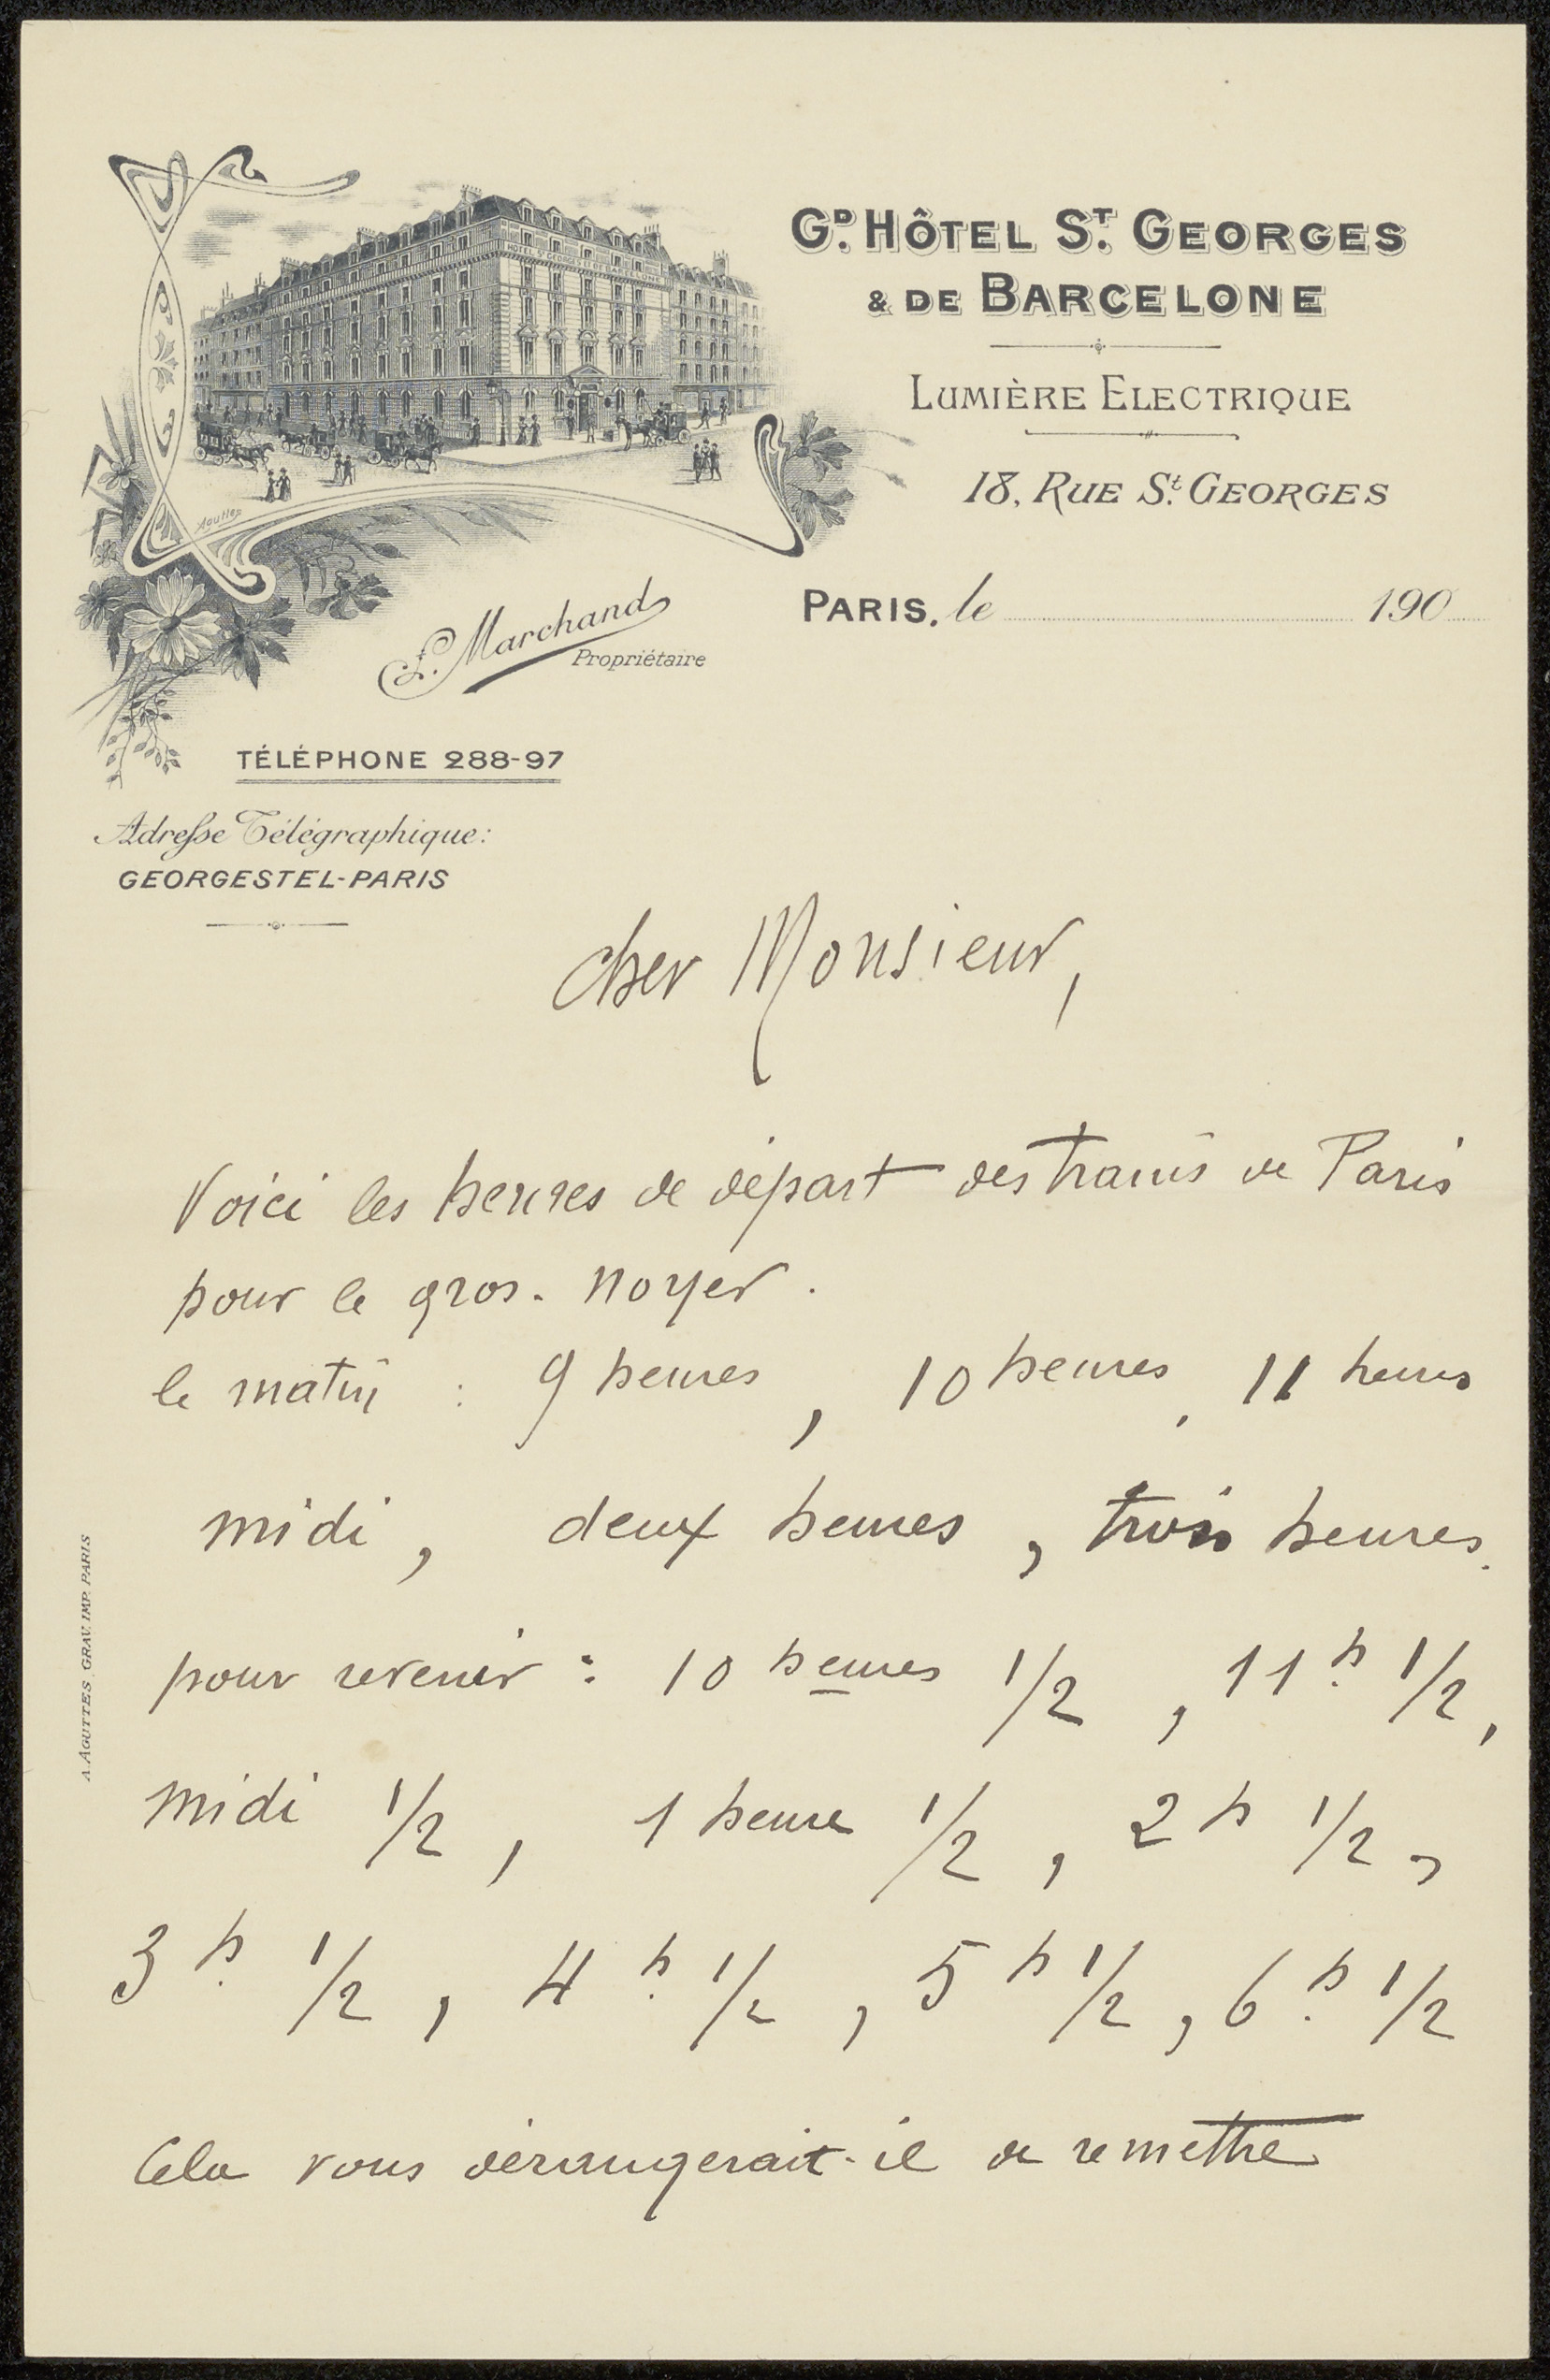 HOTEL ST GEORGES ET DE BARCELONE
Aguttes
G.D HÔTEL S.T GEORGES
& DE BARCELONE
LUMIÈRE ELECTRIQUE
18, RUE S.t GEORGES
PARIS, le 190
L. Marchand
Propriétaire
TÉLÉPHONE 288-97
Adresse Télégraphique:
GEORGESTEL-PARIS
Cher Monsieur,
Voici les heures de départ des trains de Paris
pour le gros-noyer.
le matin : 9 heures, 10 heures, 11 heures
midi, deux heures, trois heures.
pour revenir : 10 heures 1/2, 11 h. 1/2,
midi 1/2, 1 heure 1/2, 2 h 1/2,
3 h. 1/2, 4 h. 1/2, 5 h 1/2, 6 h. 1/2
Cela vous dérangerait-il de remettre
A. AGUTTES. GRAV. IMP. PARIS